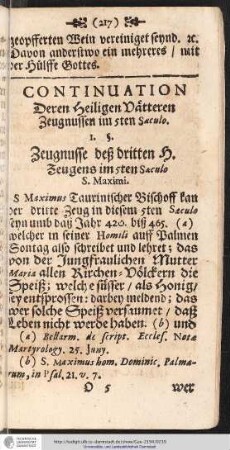 (217)
geopfferten Wein vereiniget seynd. ꝛc.
Davon anderstwo ein mehreres / mit
der Hülffe Gottes.
CONTINUATION
Deren Heiligen Vätteren
Zeugnussen im 5ten Sæculo.
1. §.
Zeugnusse deß dritten H.
Zeugens im 5ten Sæculo
S. Maximi.
S Maximus Taurinischer Bischoff kan
der dritte Zeug in diesem 5ten Sæculo
seyn umb daß Jahr 420. biß 465. (a)
welcher in seiner Homili auff Palmen
Sontag also schreibet und lehret; das
von der Jungfraulichen Mutter
Maria allen Kirchen-Völckern die
Speiß; welche süsser / als Honig/
sey entsprossen: darbey meldend; das
wer solche Speiß versaumet / daß
Leben nicht werde haben. (b) und
(a) Bellarm. de script. Eccles. Notæ
Martyrolog. 25. Juny.
(b) S. Maximus hom. Dominic, Palma-
rum, in Psal. 21. v. 7.
O 5 wer